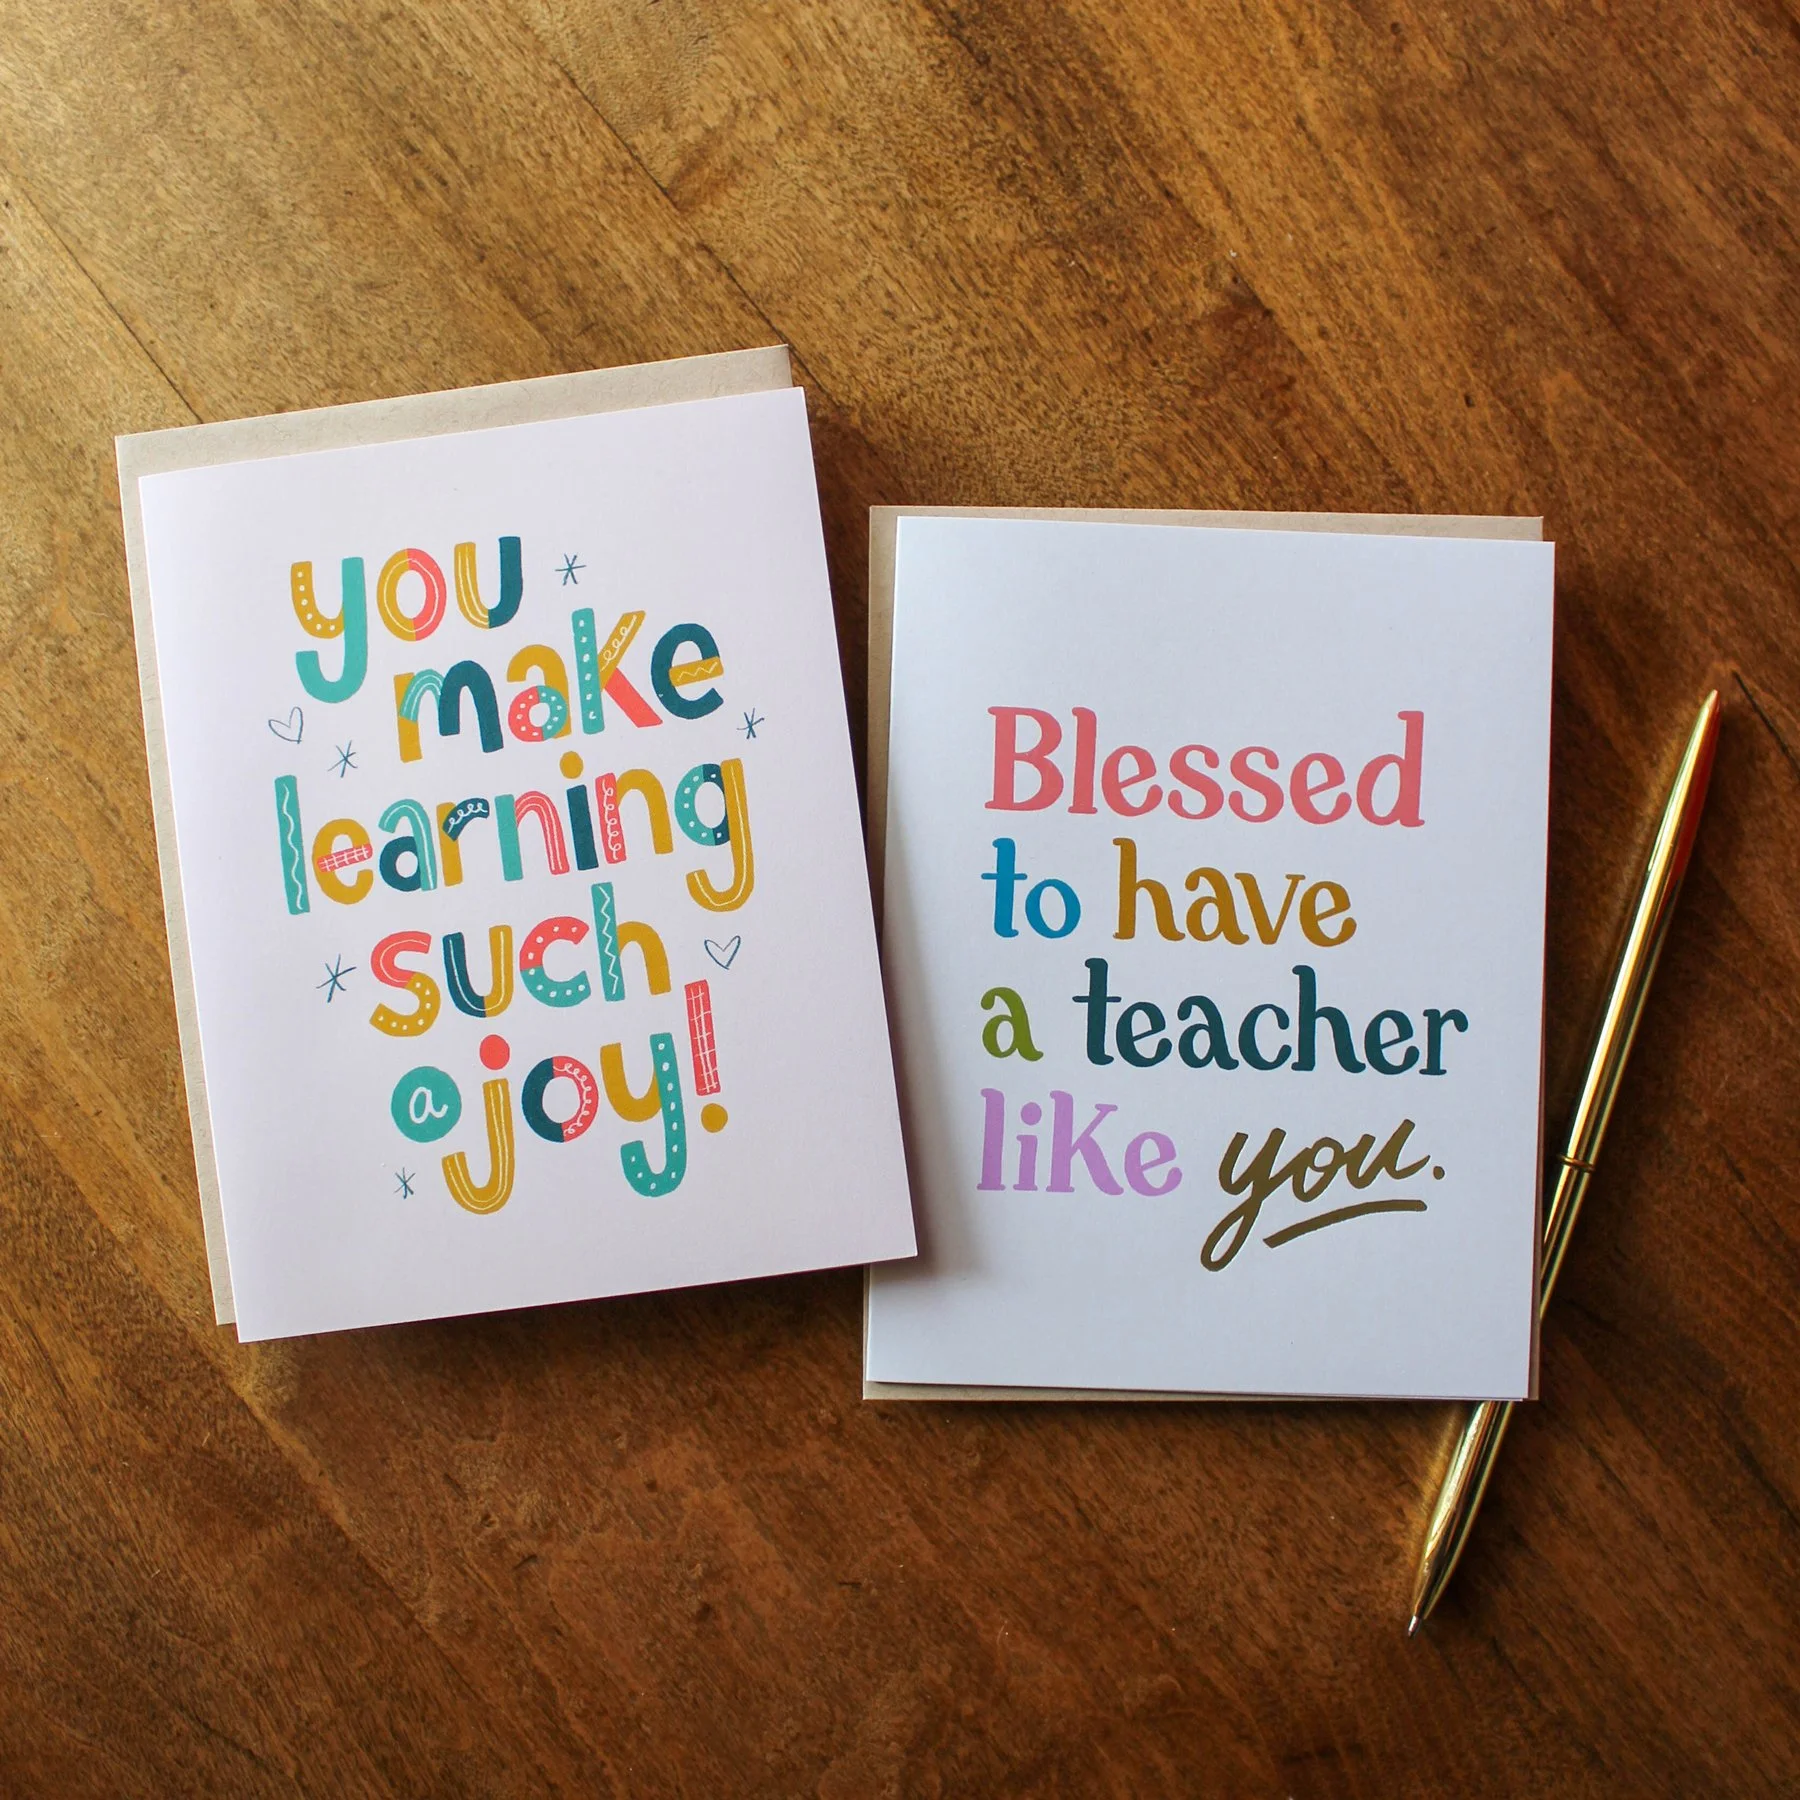 you
make
learning
such
a joy!
Blessed
to have
a teacher
like you.